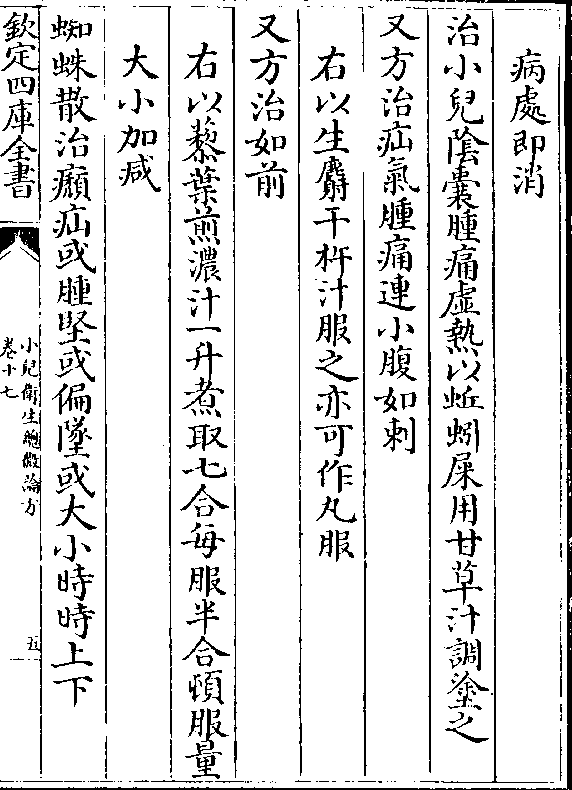 病處即消
治小兒陰囊腫痛虛熱以蚯蚓屎用甘草汁調塗之
又方治疝氣腫痛連小腹如刺
右以生麝干杵汁服之亦可作丸服
又方治如前
右以藜葉煎濃汁一升煮取七合每服半合頓服量
大小加减
蜘蛛散治㿗疝或腫堅或偏墜或大小時時上下
欽定四庫全書
小兒衛生總微論方
卷十七
五